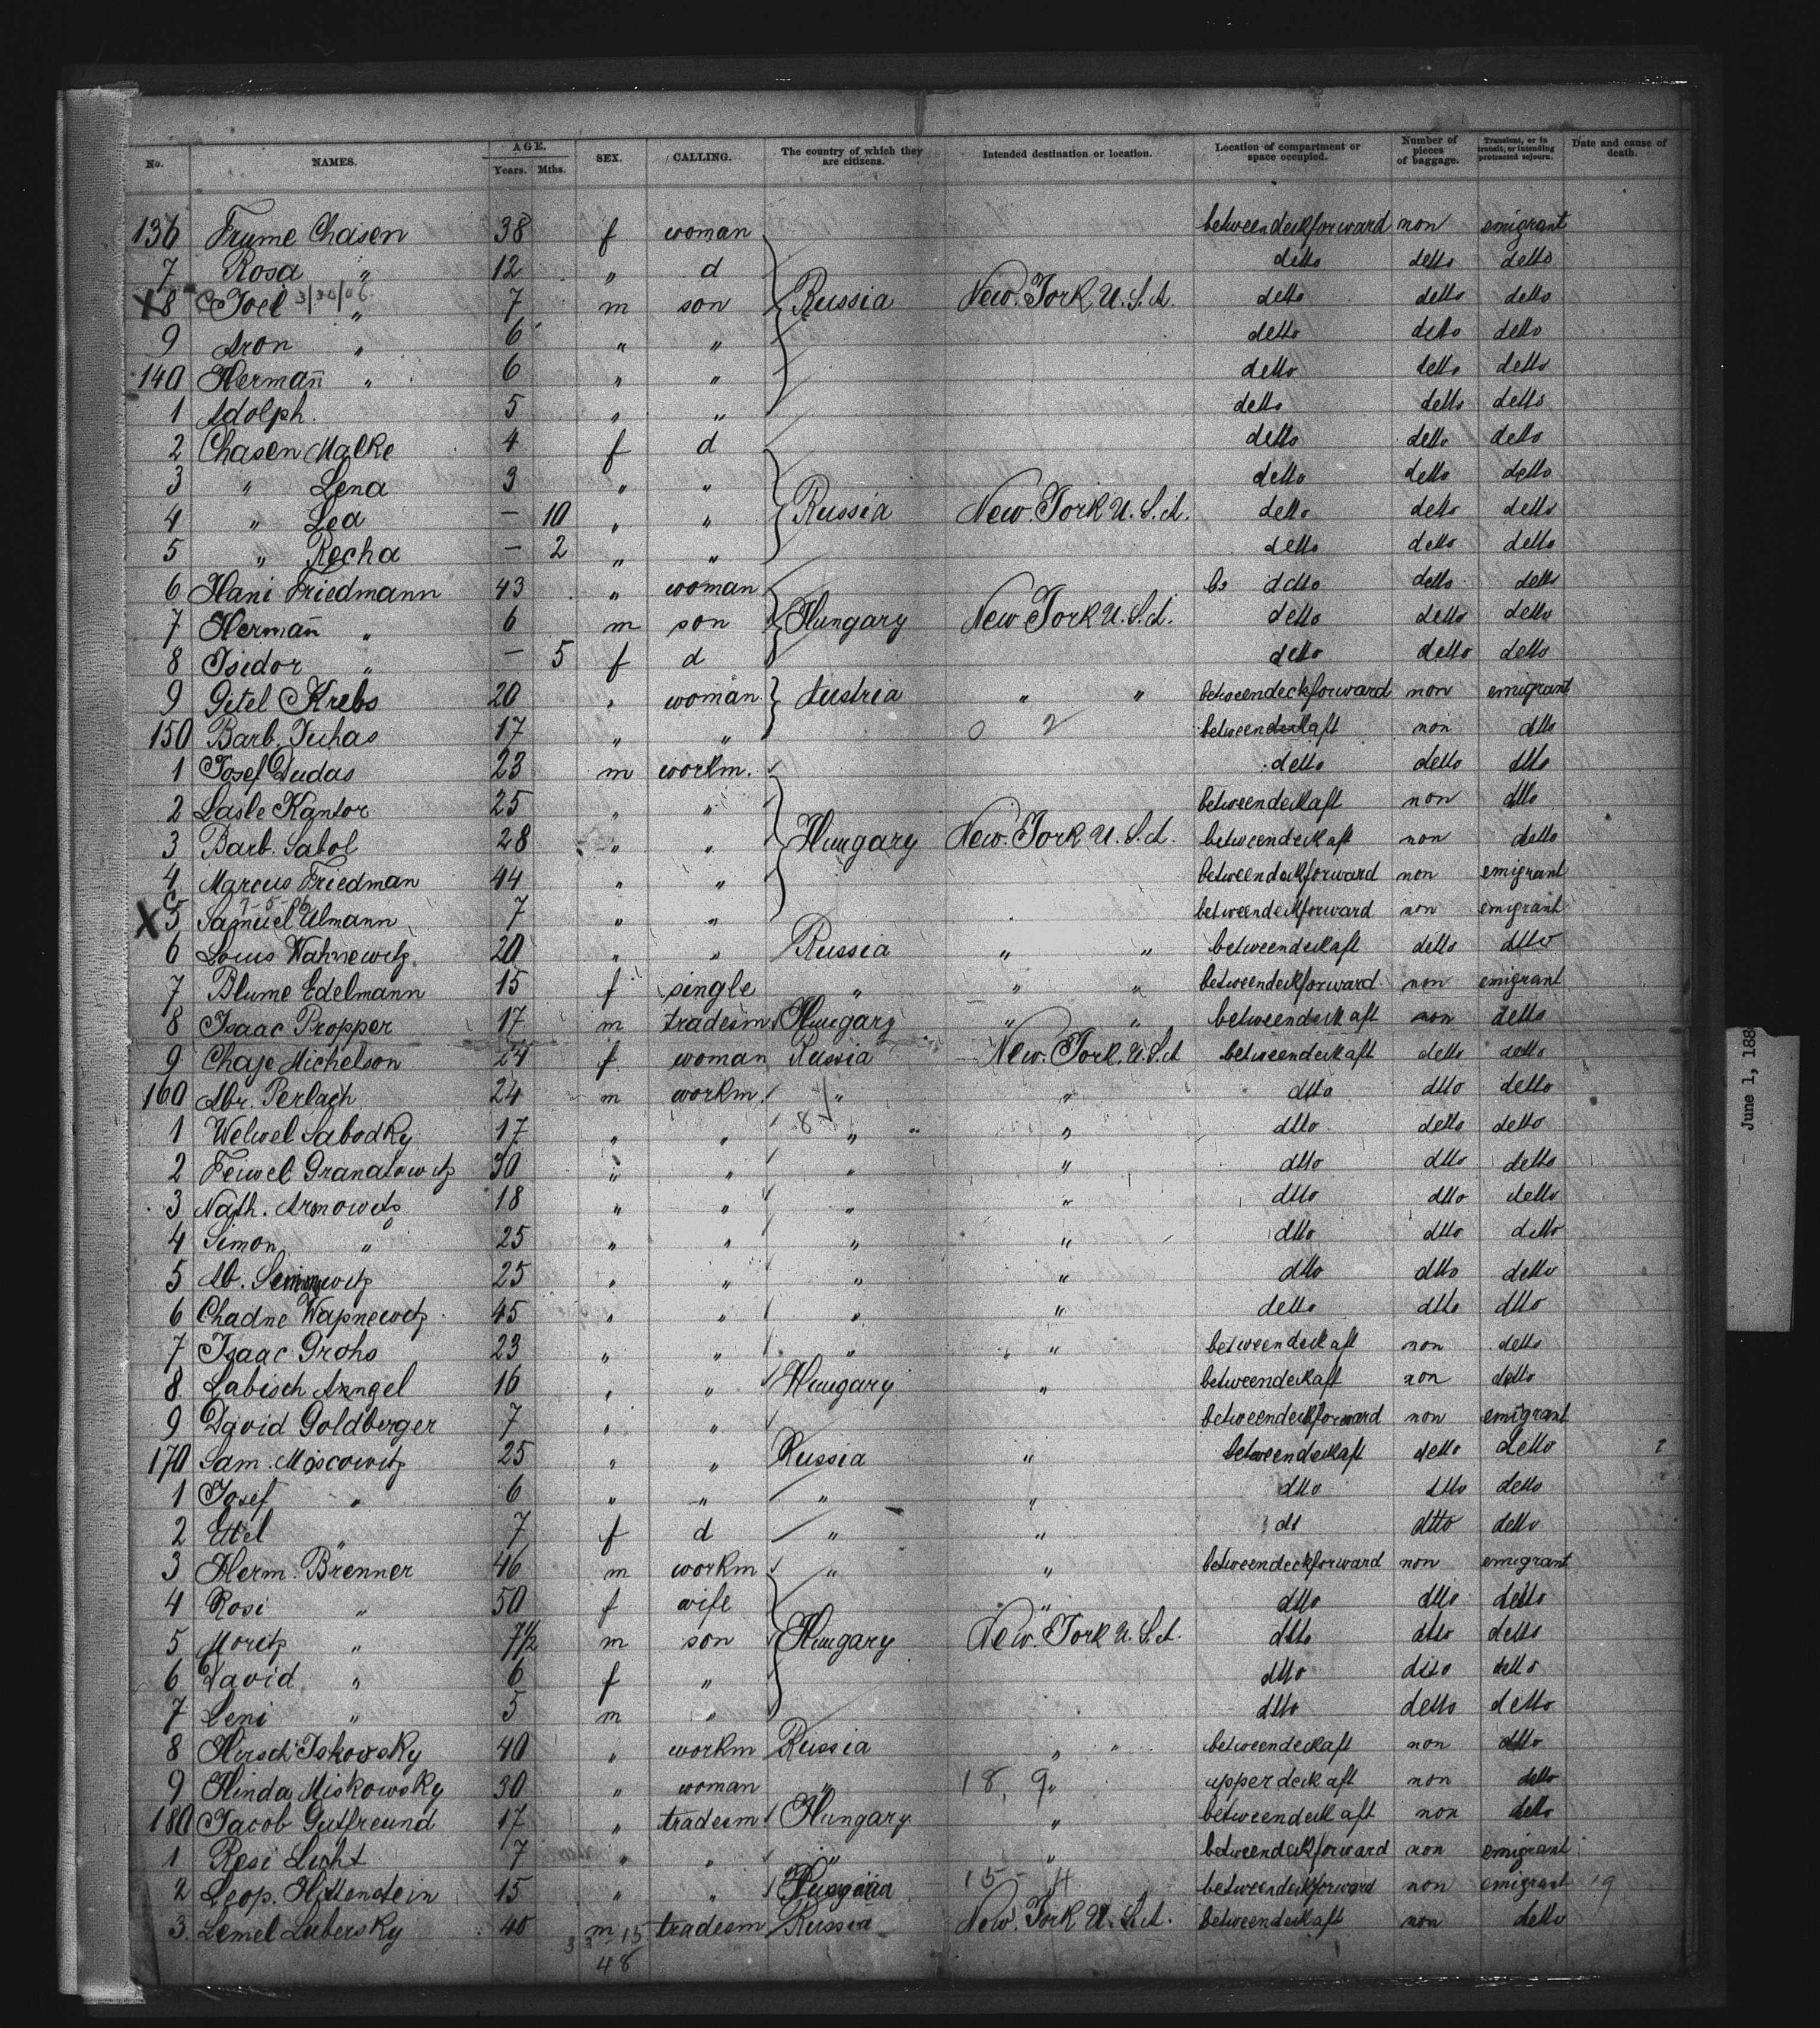 No. NAMES. AGE. Years. Mths. SEX. CALLING. The country of which they are citizens. Intended destination or location. Location of compartment or space occupied. Number of pieces of baggage. Transient, or in transit, or intending protracted sojourn. Date and cause of death.
136 Frume Chasen 38 f woman betweendeckforward non emigrant
7 Rosa " 12 " d detto detto detto
X8 C Joel 3/30/06 " 7 m son Russia New. York U. S. A. detto detto detto
9 Aron " 6 " " detto detto detto
140 Hermañ " 6 " " detto detto detto
1 Adolph. 5 " " detto detto detto
2 Chasen Malke 4 f d detto detto detto
3 " Lena 3 " " detto detto detto
4 " Lea – 10 " " Russia New. York U. S. A. detto detto detto
5 " Recha – 2 " " detto detto detto
6 Hani Friedmann 43 " woman detto detto detto
7 Hermañ " 6 m son Hungary New York U. S. A. detto detto detto
8 Isidor " – 5 f d detto detto detto
9 Gitel Krebs 20 " woman Austria " " betweendeckforward non emigrant
150 Barb. Juhas 17 " " 0 2 betweendeckaft non dtto
1 Josef Dudas 23 m workm. detto detto dtto
2 Lasle Kantor 25 " " betweendeckaft non dtto
3 Barb. Sabol 28 " " Hungary New. York U. S. A. betweendeck aft non detto
4 Marcus Friedman 44 " " betweendeckforward non emigrant
X C 5 Samuel Ulmann 7 " " betweendeckforward non emigrant
6 Louis Wahnewitz. 20 " " Russia " " betweendeckaft detto dtto
7 Blume Edelmann 15 f single " " " betweendeckforward non emigrant
8 Isaac Propper 17 m tradesm Hungary " " betweendeck aft non detto
9 Chaje Michelson 24 f woman Russia New. York. U. S. A betweendeckaft detto detto
160 Abr. Perlach 24 m workm. " " dtto dtto detto
1 Welwel Sabodky 17 " " 8 " " dtto detto detto
2 Feiwel Granatowitz 30 " " " " dtto dtto detto
3 Nath. Arnowitz 18 " " " " dtto dtto detto
4 Simon " 25 " " " " dtto dtto detto
5 Ab. 25 " " " " dtto dtto detto
6 Chadne Wapnewitz 45 " " " " detto dtto dtto
7 Isaac Grohs 23 " " " " betweendeck aft non detto
8. Labisch Anngel 16 " " Hungary " betweendeckaft non detto
9 David Goldberger 7 " " betweendeckforward non emigrant
170 Sam. Moscowitz 25 " " Russia " betweendeckaft detto detto
1 Josef " 6 " " " " dtto dtto detto
2 Ettel " 7 f d " " dt dtto detto
3 Herm. Brenner 46 m workm " " betweendeckforward non emigrant
4 Rosi " 50 f wife " dtto dtto detto
5 Moritz " 7½ m son Hungary New. York U. S. A. dtto dtto detto
6 David " 6 f " dtto dito detto
7 Leni " 5 m " dtto detto detto
8 Hirsch Iskowsky 40 " workm Russia " " betweendeckaft non dtto
9 Hinda Miskowsky 30 " woman " 18, 9 " upperdeck aft non detto
180 Jacob Gutfreund 17 " tradesm Hungary " betweendeck aft non detto
1 Resi Licht 7 " " " " betweendeckforward non emigrant
2 Leop. Hittenstein 15 " " 15 – 4 betweendeckforward non emigrant 19
3. Lemel Lubersky 40 m tradesm Russia New. York U. S. A. betweendeckaft non detto
3 3 – 15
48
June 1, 188